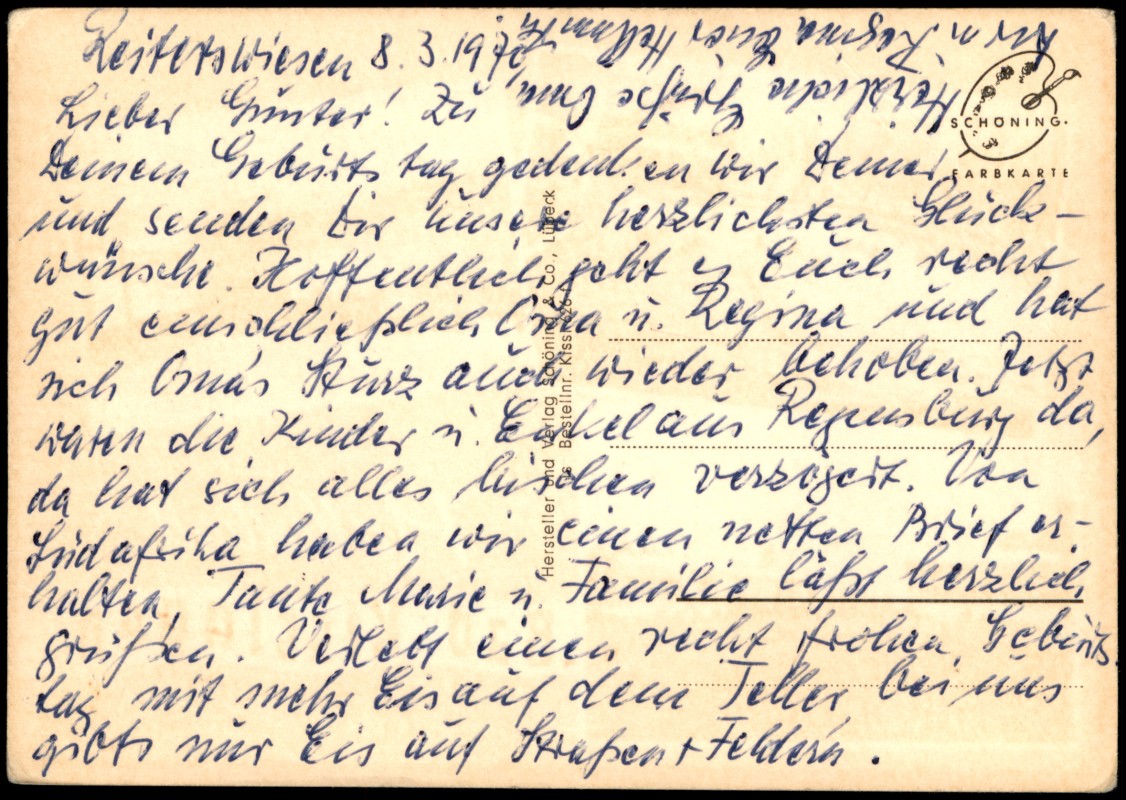 Reiterswiesen 8.3.1970
Lieber Günter! Zu
Deinem Geburtstag gedenken wir Deiner
und senden Dir unsere herzlichsten Glück-
wünsche. Hoffentlich geht es Euch recht
gut einschließlich Oma u. Regina und hat
sich Omas Sturz auch wieder behoben. Jetzt
waren die Kinder u. Enkel aus Regensburg da,
da hat sich alles bischen verzögert. Von
Südafrika haben wir einen netten Brief er-
halten, Tante Marie u. Familie läßt herzlich
grüßen. Verlebt einen recht frohen Geburts
tag mit mehr Eis auf dem Teller bei uns
gibts nur Eis auf Straßen + Feldern.
Herzliche Grüße Oma,
u. Regina Euer Hellmuth
SCHÖNING.
FARBKARTE
Hersteller und Verlag Schöning & Co., Lübeck
Bestellnr.